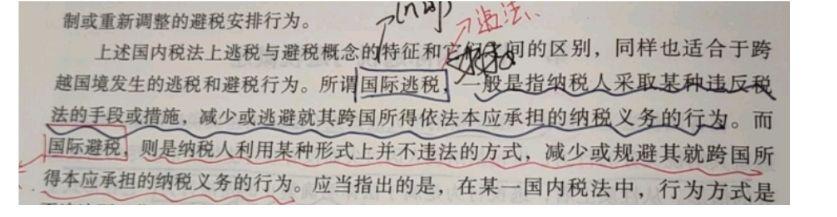 制或重新调整的避税安排行为。
违法
上述国内税法上逃税与避税概念的特征和它们之间的区别，同样也适合于跨
越国境发生的逃税和避税行为。所谓国际逃税，一般是指纳税人采取某种违反税
法的手段或措施，减少或逃避就其跨国所得依法本应承担的纳税义务的行为。而
国际避税，则是纳税人利用某种形式上并不违法的方式，减少或规避其就跨国所
得本应承担的纳税义务的行为。应当指出的是，在某一国内税法中，行为方式是